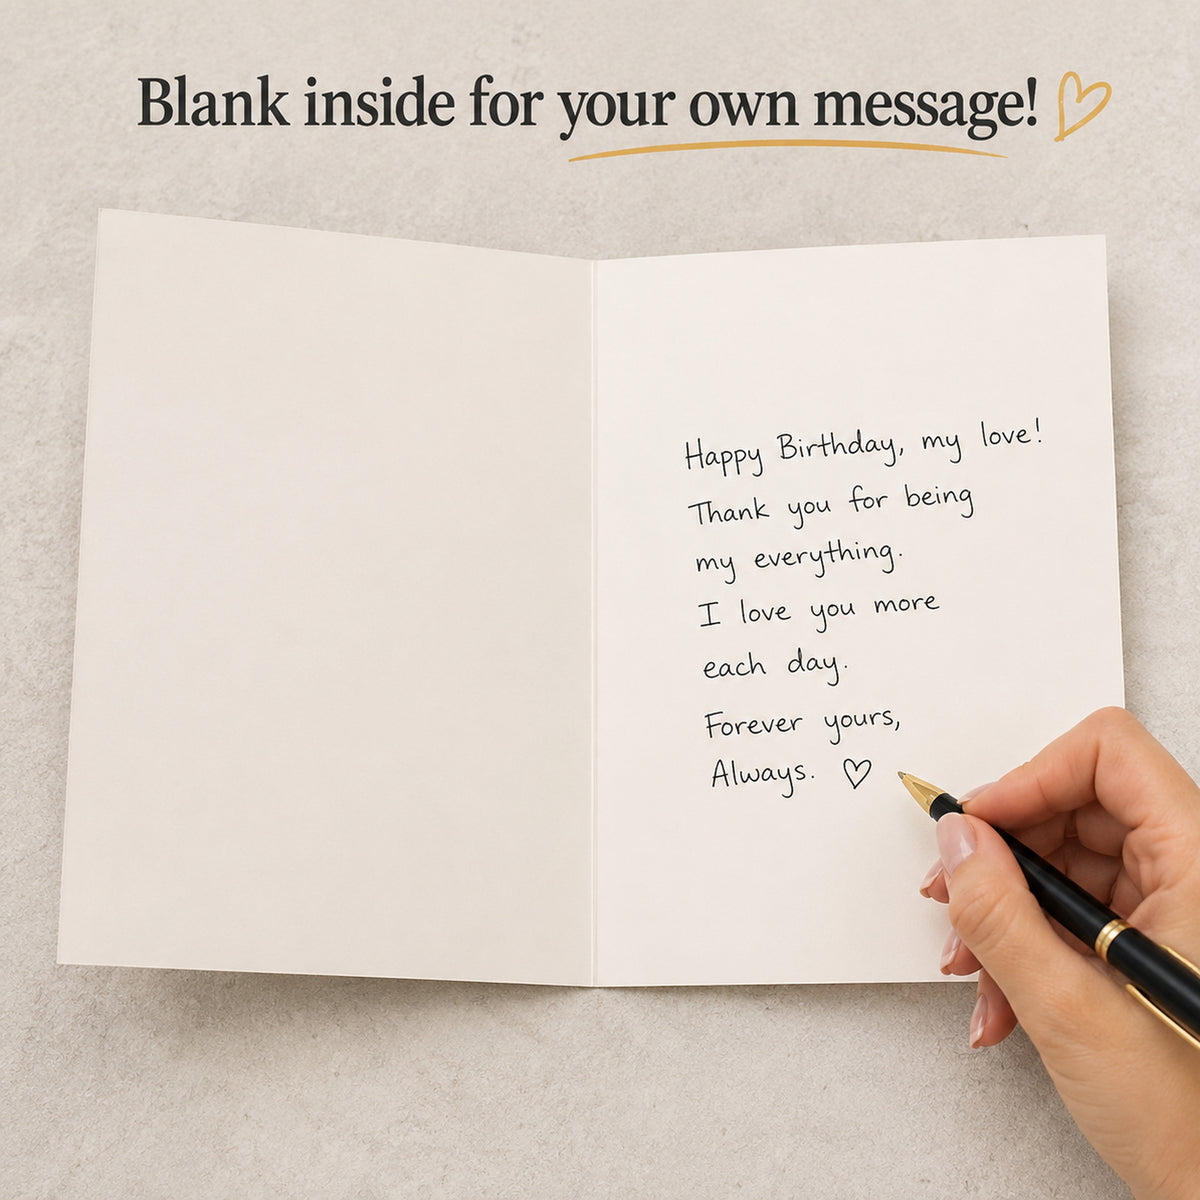 Blank inside for your own message!
Happy Birthday, my love!
Thank you for being
my everything.
I love you more
each day.
Forever yours,
Always.